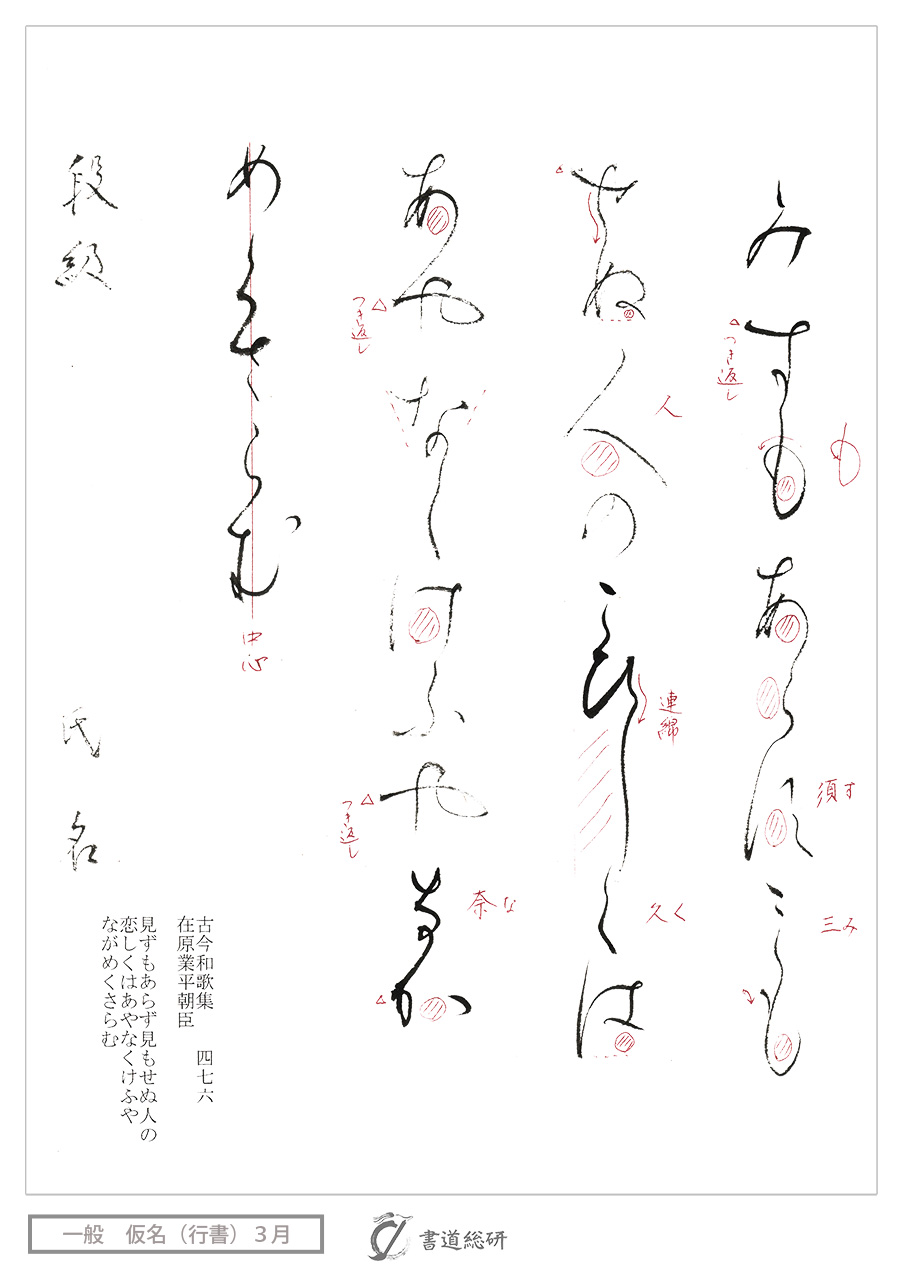 みすもあら須三も
せぬ人のこひし久は
あやなくけふや奈か
めくさらむ
段級
氏名
も
つき返し
須す
三み
人
連綿
久く
つき返し
つき返し
奈な
中心
古今和歌集　四七六
在原業平朝臣
見ずもあらず見もせぬ人の
恋しくはあやなくけふや
ながめくさらむ
一般　仮名（行書）３月
書道総研